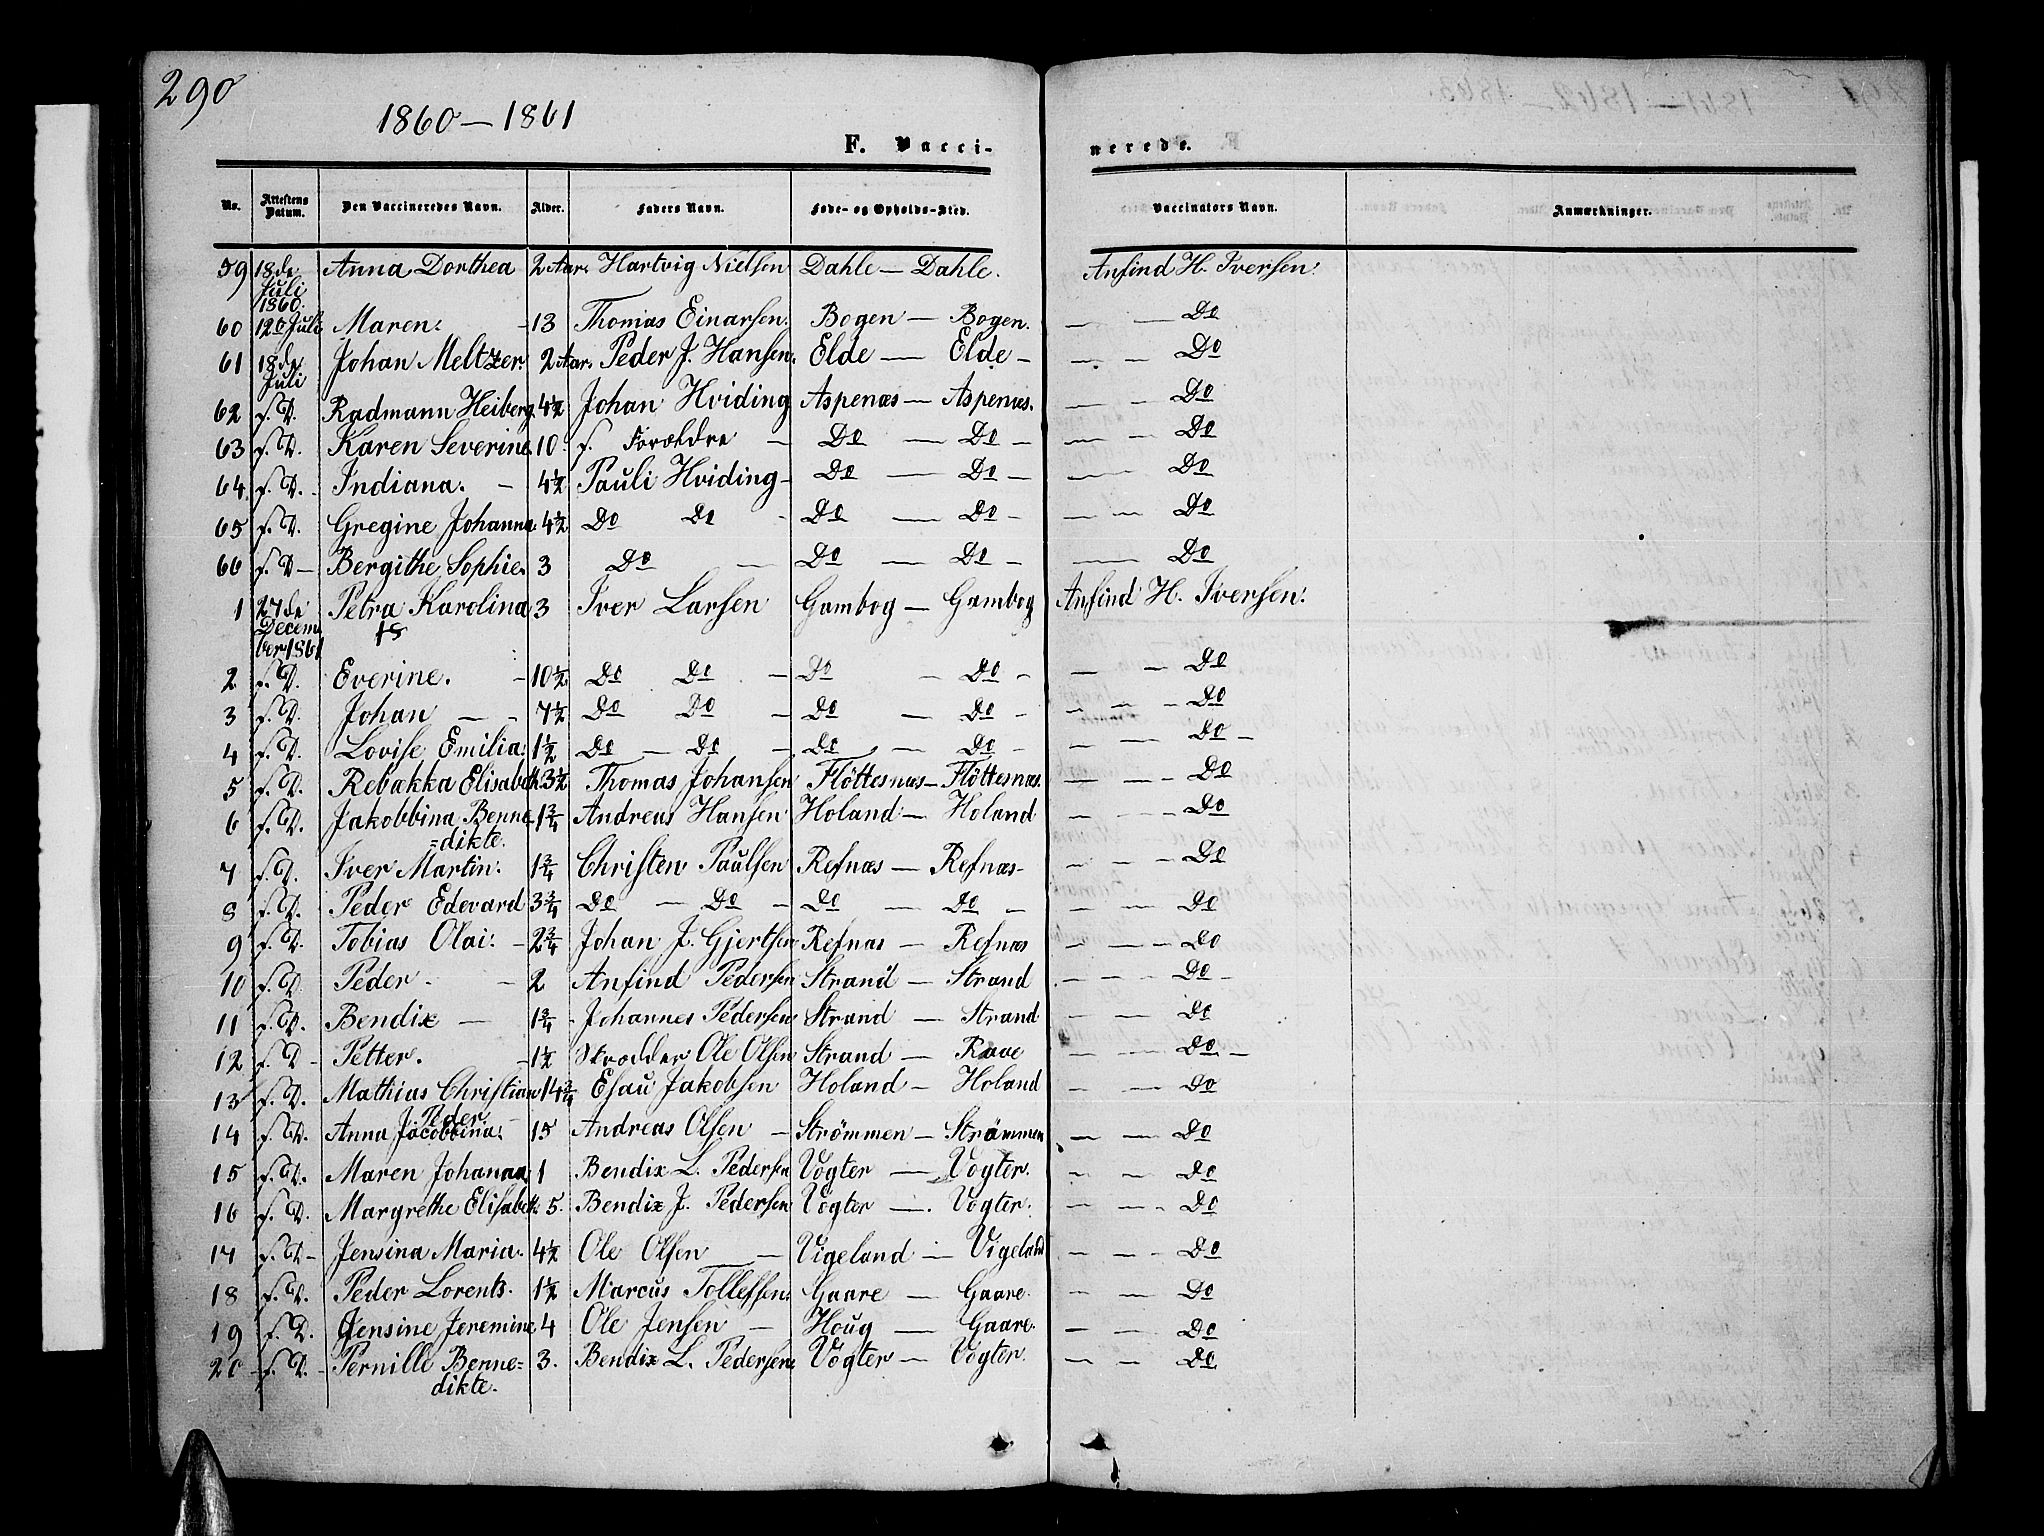 290
1860 — 1861
F. Vacci-
nerede.
No. Attestens Datum. Den Vaccineredes Navn. Alder. Faders Navn. Føde- og Opholds-Sted. Vaccinators Navn. Anmærkninger.
59 18de Juli 1860. Anna Dorthea 2 Aar. Hartvig Nielsen Dahle — Dahle. Anfind H. Iversen.
60 12te Juli Maren. - 13 Thomas Einarsen. Bogen — Bogen. — — Do
61 18de Juli Johan Meltzer. 2 Aar. Peder J. Hansen. Elde — Elde - — - Do
62 f. D. Radmann Heiberg. 4½ Johan Hviding Aspenæs — Aspenæs. — - Do
63 f. D. Karen Severine. 10. f. Forældre - Do — Do - — - Do
64. f. D. - Indiana. - 4½ Pauli Hviding - Do — Do - — Do
65 f. D. Gregine Johanna. 4½ Do Do - Do — Do - — - Do
66 f. D - Bergithe Sophie. 3 Do - Do — Do - — Do
1 27de December 1861 Petra Karolina 3 Iver Larsen Gambog — Gambog Anfind H. Iversen.
2. f. D. Everine. - 10½ Do Do - Do - Do - — - Do
3 f. D. Johan — - 7½ Do Do - Do — Do - - - - Do
4 f. D. Lovise Emilia. 1½ Do — Do - Do — Do - — - Do -
5 f. D. Rebækka Elisabeth 3½ Thomas Johansen Fløttesnæs — Fløttesnæs. - - - Do
6 f. D. Jakobbina Benne- 1¾ Andreas Hansen Holand — Holand - - - Do
=dikte.
7 f. D. Iver Martin. 1¾ Christen Paulsen Refnæs — Refnæs - - - - Do
8 f. D. Peder Edevard 3¾ Do — Do - Do — Do - - - - Do
9 f. D. Tobias Olai. - 2¾ Johan J. Gjertsen Refnæs — Refnæs - - - Do
10 f. D. Peder. - 2 Anfind Pedersen Strand — Strand - - - Do -
11 f. D. Bendix — 1¾ - Johannes Pedersen Strand — Strand - - - Do
12. f. D - Petter. - 1½ Skrædder Ole Olsen Strand — - - - Do. -
13 f. D. Mathias Christian 14¾ Esau Jakobsen Holand — Holand - - Do
Peder
14 f. D. Anna Jacobbina. 15 Andreas Olsen - Strömmen — Strömmen - - Do
15 f. D. Maren Johanna 1 Bendix L. Pedersen Vogter — Vogter. - - Do
16 f. D. Margrethe Elisabeth. 5. Bendix J. Pedersen Vogter —. Vogter. - - - Do
17 f. D - Jensina Maria. 4½ Ole Olsen - Vigeland - Vigeland - - - Do
18 f. D. Peder Lorents. 1½ Marcus Tollefsen. Gaare — Gaare. - - Do
19 f. D. Jensine Jeremine 4 Ole Jensen - Houg — Gaare. - - Do
20 - f. D. - Pernille Benne= 3. Bendix L. Pedersen. Vogter — Vogter. - - Do
dikte.